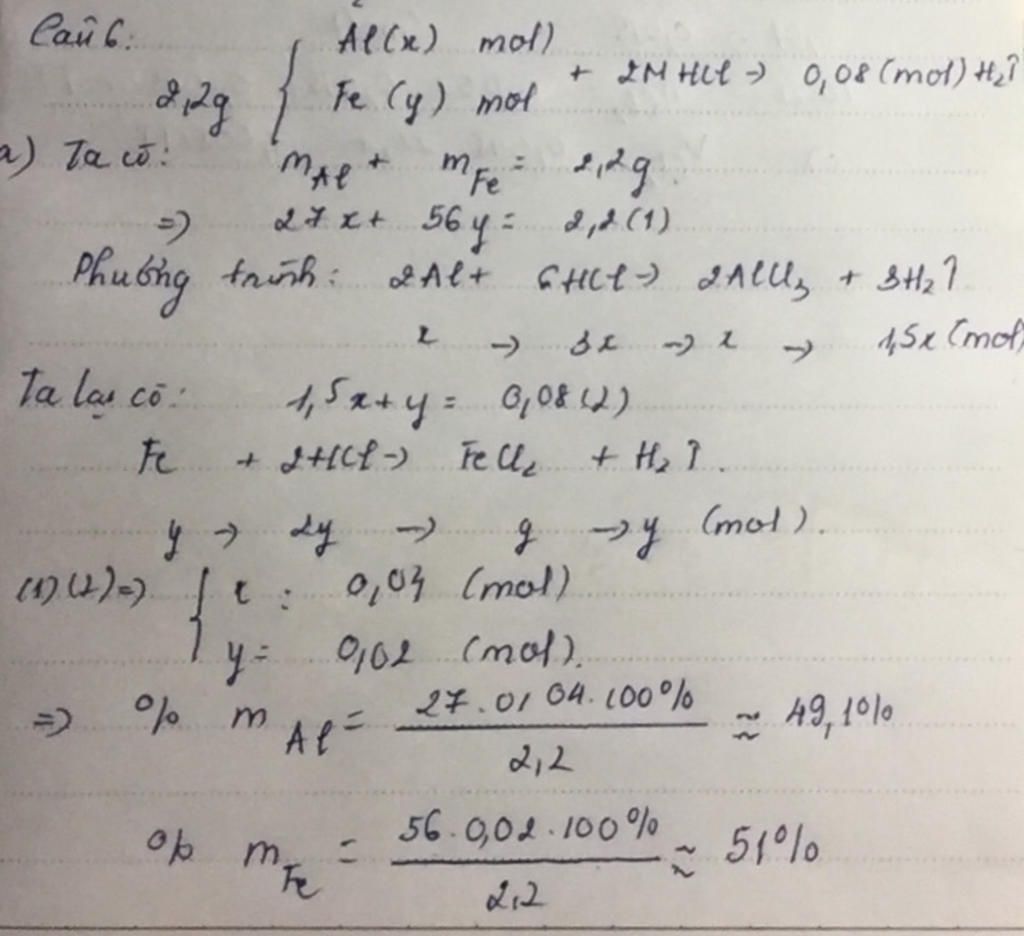 Câu 6:
2,2g { Al(x) mol)
Fe (y) mol + 2M HCl → 0,08 (mol) H₂↑
a) Ta có: m_Al + m_Fe = 2,2g
=> 27x + 56y = 2,2 (1)
Phương trình: 2Al + 6HCl → 2AlCl₃ + 3H₂↑
x → 3x → x → 1,5x (mol)
Ta lại có: 1,5x + y = 0,08 (2)
Fe + 2HCl → FeCl₂ + H₂↑.
y → 2y → y → y (mol).
(1) (2) => { x = 0,04 (mol)
y = 0,02 (mol).
=> % m_Al = 27.0,04.100% / 2,2 ≈ 49,1%
% m_Fe = 56.0,02.100% / 2,2 ≈ 51%